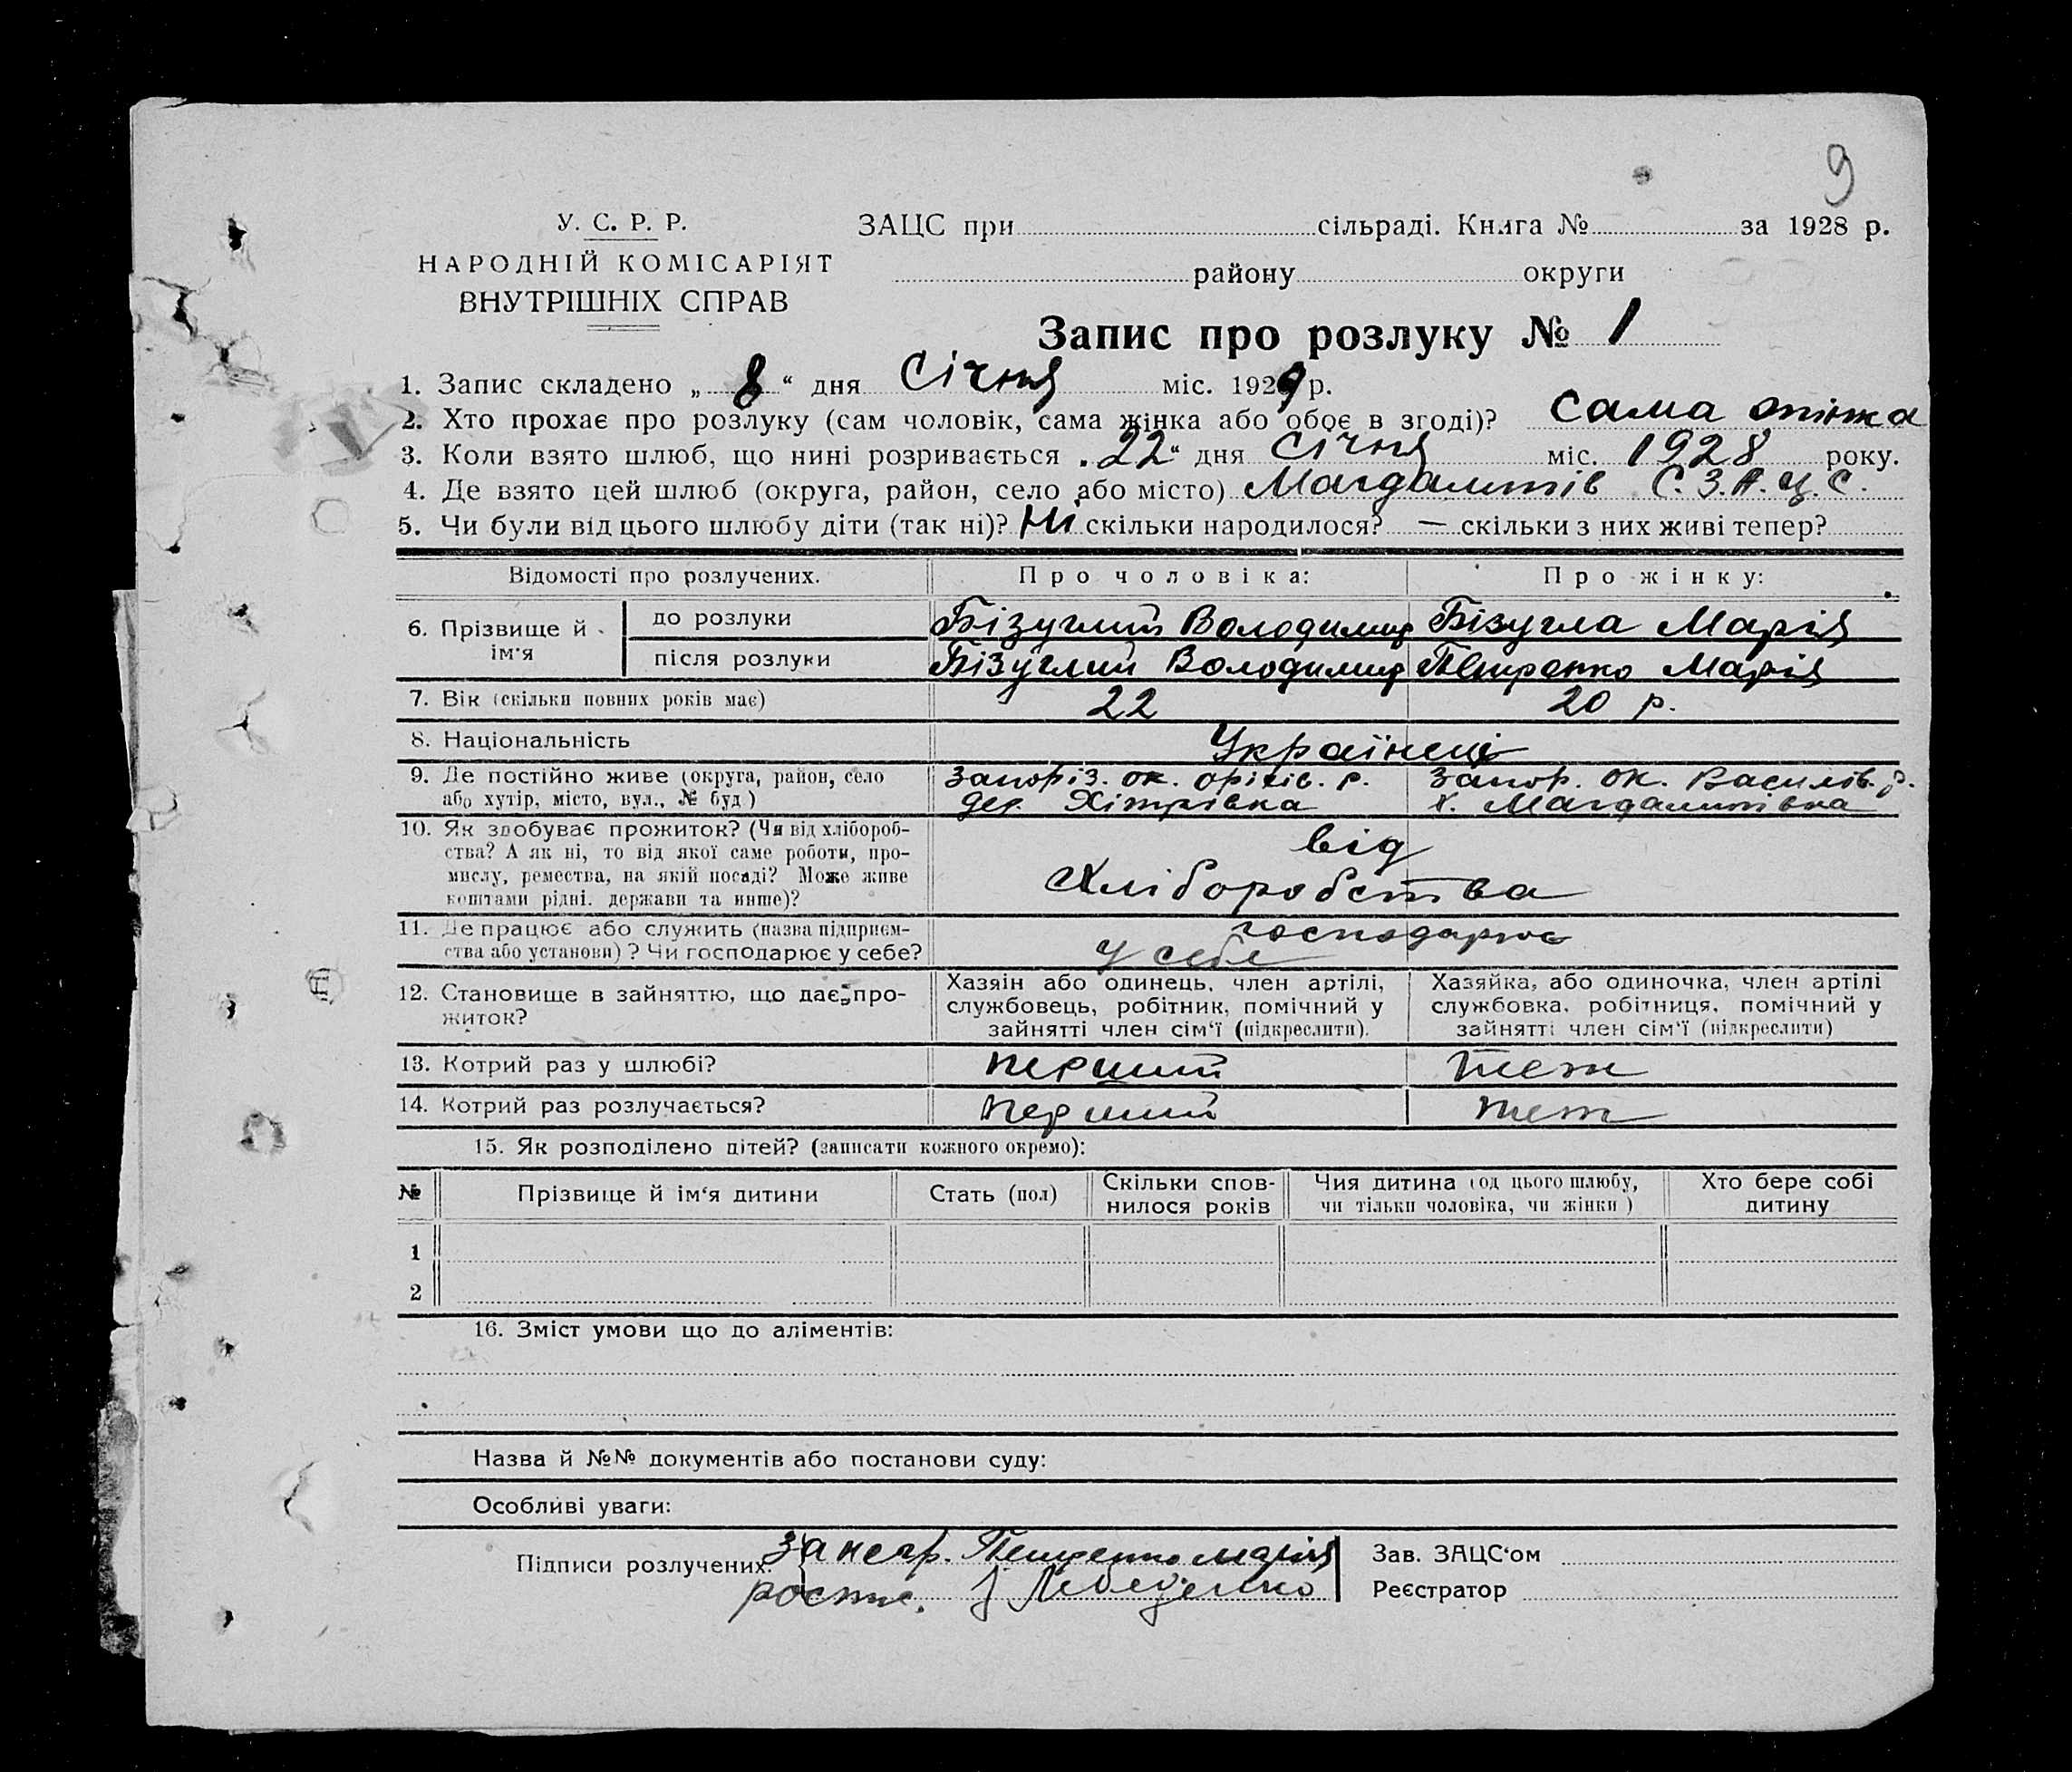 9
У. С. Р. Р.
НАРОДНІЙ КОМІСАРІЯТ
ВНУТРІШНІХ СПРАВ
ЗАЦС при сільраді. Книга № за 1928 р.
району округи
Запис про розлуку № 1
1. Запис складено „ 8 “ дня Січня міс. 1929 р.
2. Хто прохає про розлуку (сам чоловік, сама жінка або обоє в згоді)? Сама
3. Коли взято шлюб, що нині розривається „22“ дня Січня міс. 1928 року.
4. Де взято цей шлюб (округа, район, село або місто) Магдалинів С.З.А.Ц.С.
5. Чи були від цього шлюбу діти (так ні)? Ні скільки народилося? — скільки з них живі тепер?
Відомості про розлучених. Про чоловіка: Про жінку:
6. Прізвище й ім'я
до розлуки Бізуглий Володимир Бізугла Марія
після розлуки Бізуглий Володимир Петренко Марія
7. Вік (скільки повних років має) 22 20 р.
8. Національність Українеці
9. Де постійно живе (округа, район, село або хутір, місто, вул., № буд)
Запоріз. ок. оріхів. р.
дер. Хітрівка
Запор. ок. Василів. р.
х. Магдалинівка
10. Як здобуває прожиток? (Чи від хлібороб-
ства? А як ні, то від якої саме роботи, про-
мислу, ремества, на якій посаді? Може живе
коштами рідні. держави та инше)?
від
Хліборобства
11. Де працює або служить (назва підприєм-
ства або установи) ? Чи господарює у себе?
господарює
у себе
12. Становище в зайняттю, що дає про-
житок?
Хазяїн або одинець, член артілі,
службовець, робітник, помічний у
зайнятті член сім'ї (підкреслити).
Хазяйка, або одиночка, член артілі
службовка, робітниця, помічний у
зайнятті член сім'ї (підкреслити)
13. Котрий раз у шлюбі? перший теж
14. Котрий раз розлучається? перший теж
15. Як розподілено дітей? (записати кожного окремо):
№ Прізвище й ім'я дитини Стать (пол) Скільки спов-
нилося років Чия дитина (од цього шлюбу,
чи тільки чоловіка, чи жінки) Хто бере собі
дитину
1
2
16. Зміст умови що до аліментів:
Назва й №№ документів або постанови суду:
Особливі уваги:
Підписи розлучених: за негр. Петренко Марія
роспис. Лебеденко
Зав. ЗАЦС'ом
Реєстратор